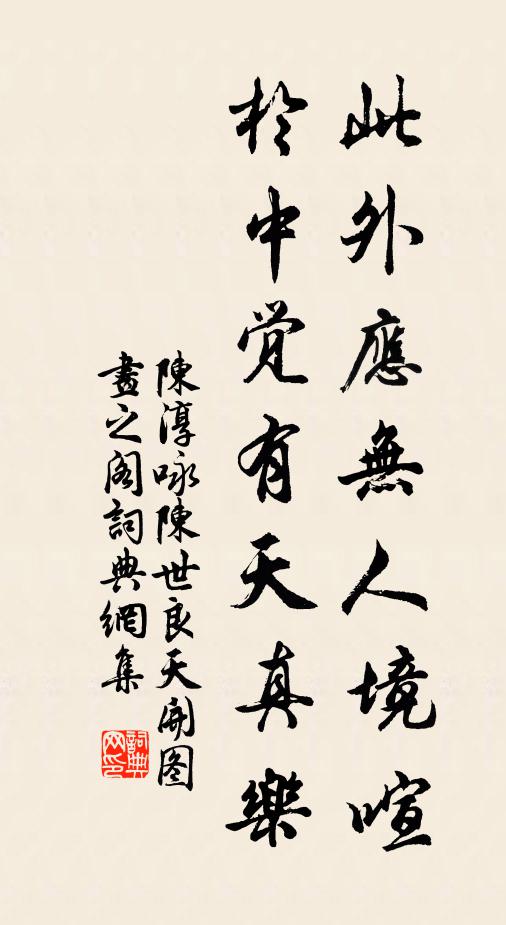 此外應無人境喧
於中覚有天真樂
陳淳咏陳世良天開图
畫之阁詞典網集
詞典
网印